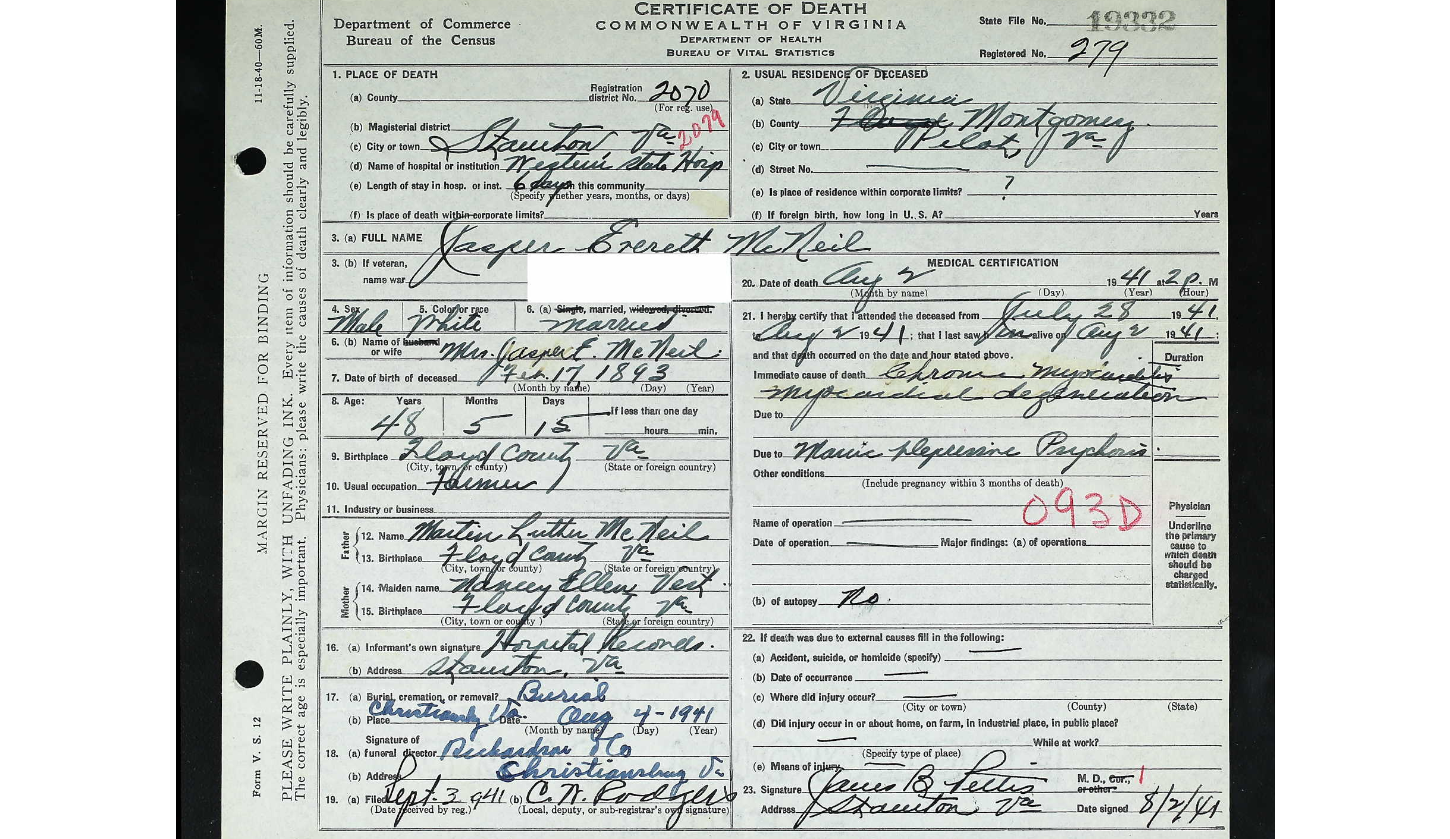 CERTIFICATE OF DEATH
COMMONWEALTH OF VIRGINIA
DEPARTMENT OF HEALTH
BUREAU OF VITAL STATISTICS
Department of Commerce
Bureau of the Census
State File No. 19332
Registered No. 279
11-18-40—60M.
MARGIN RESERVED FOR BINDING
PLEASE WRITE PLAINLY, WITH UNFADING INK. Every item of information should be carefully supplied.
The correct age is especially important. Physicians: please write the causes of death clearly and legibly.
Form V. S. 12
1. PLACE OF DEATH
(a) County
Registration district No. 2070
(For reg. use)
2079
(b) Magisterial district
(c) City or town Staunton Va
(d) Name of hospital or institution Western State Hosp
(e) Length of stay in hosp. or inst. 6 days In this community
(Specify whether years, months, or days)
(f) Is place of death within corporate limits?
2. USUAL RESIDENCE OF DECEASED
(a) State Virginia
(b) County Floyd Montgomery
(c) City or town Pilot, Va
(d) Street No.
(e) Is place of residence within corporate limits? ?
(f) If foreign birth, how long in U. S. A? Years
3. (a) FULL NAME Jasper Everett McNeil
3. (b) If veteran, name war
4. Sex Male
5. Color or race White
6. (a) Single, married, widowed, divorced. Married
6. (b) Name of husband or wife Mrs. Jasper E. McNeil
7. Date of birth of deceased Feb. 17, 1893
(Month by name) (Day) (Year)
8. Age: Years 48 Months 5 Days 15 If less than one day hours min.
9. Birthplace Floyd County Va
(City, town, or county) (State or foreign country)
10. Usual occupation Farmer
11. Industry or business
Father
12. Name Martin Luther McNeil
13. Birthplace Floyd County Va
(City, town, or county) (State or foreign country)
Mother
14. Maiden name Nancy Ellen Vest
15. Birthplace Floyd County Va
(City, town or county) (State or foreign country)
16. (a) Informant's own signature Hospital Records.
(b) Address Staunton, Va
17. (a) Burial, cremation, or removal? Burial
(b) Place Christiansbg Va. Date Aug 4-1941
(Month by name) (Day) (Year)
18. Signature of (a) funeral director Richardson & Co
(b) Address Christiansburg Va
19. (a) Filed Sept. 3, 1941 (b) C. W. Rodgers
(Date received by reg.) (Local, deputy, or sub-registrar's own signature)
MEDICAL CERTIFICATION
20. Date of death Aug 2 1941 at 2 P. M
(Month by name) (Day) (Year) (Hour)
21. I hereby certify that I attended the deceased from July 28 1941
to Aug 2 1941; that I last saw him alive on Aug 2 1941;
and that death occurred on the date and hour stated above.
Duration
Immediate cause of death Chronic Myocarditis
Myocardial degeneration
Due to
Due to Manic Depressive Psychosis
Other conditions
(Include pregnancy within 3 months of death)
093D
Name of operation
Date of operation Major findings: (a) of operations
(b) of autopsy No.
Physician
Underline the primary cause to which death should be charged statistically.
22. If death was due to external causes fill in the following:
(a) Accident, suicide, or homicide (specify)
(b) Date of occurrence
(c) Where did injury occur?
(City or town) (County) (State)
(d) Did injury occur in or about home, on farm, in industrial place, in public place?
While at work?
(Specify type of place)
(e) Means of injury
23. Signature James B. Pettis M. D., Cor., or other 1
Address Staunton Va Date signed 8/2/41